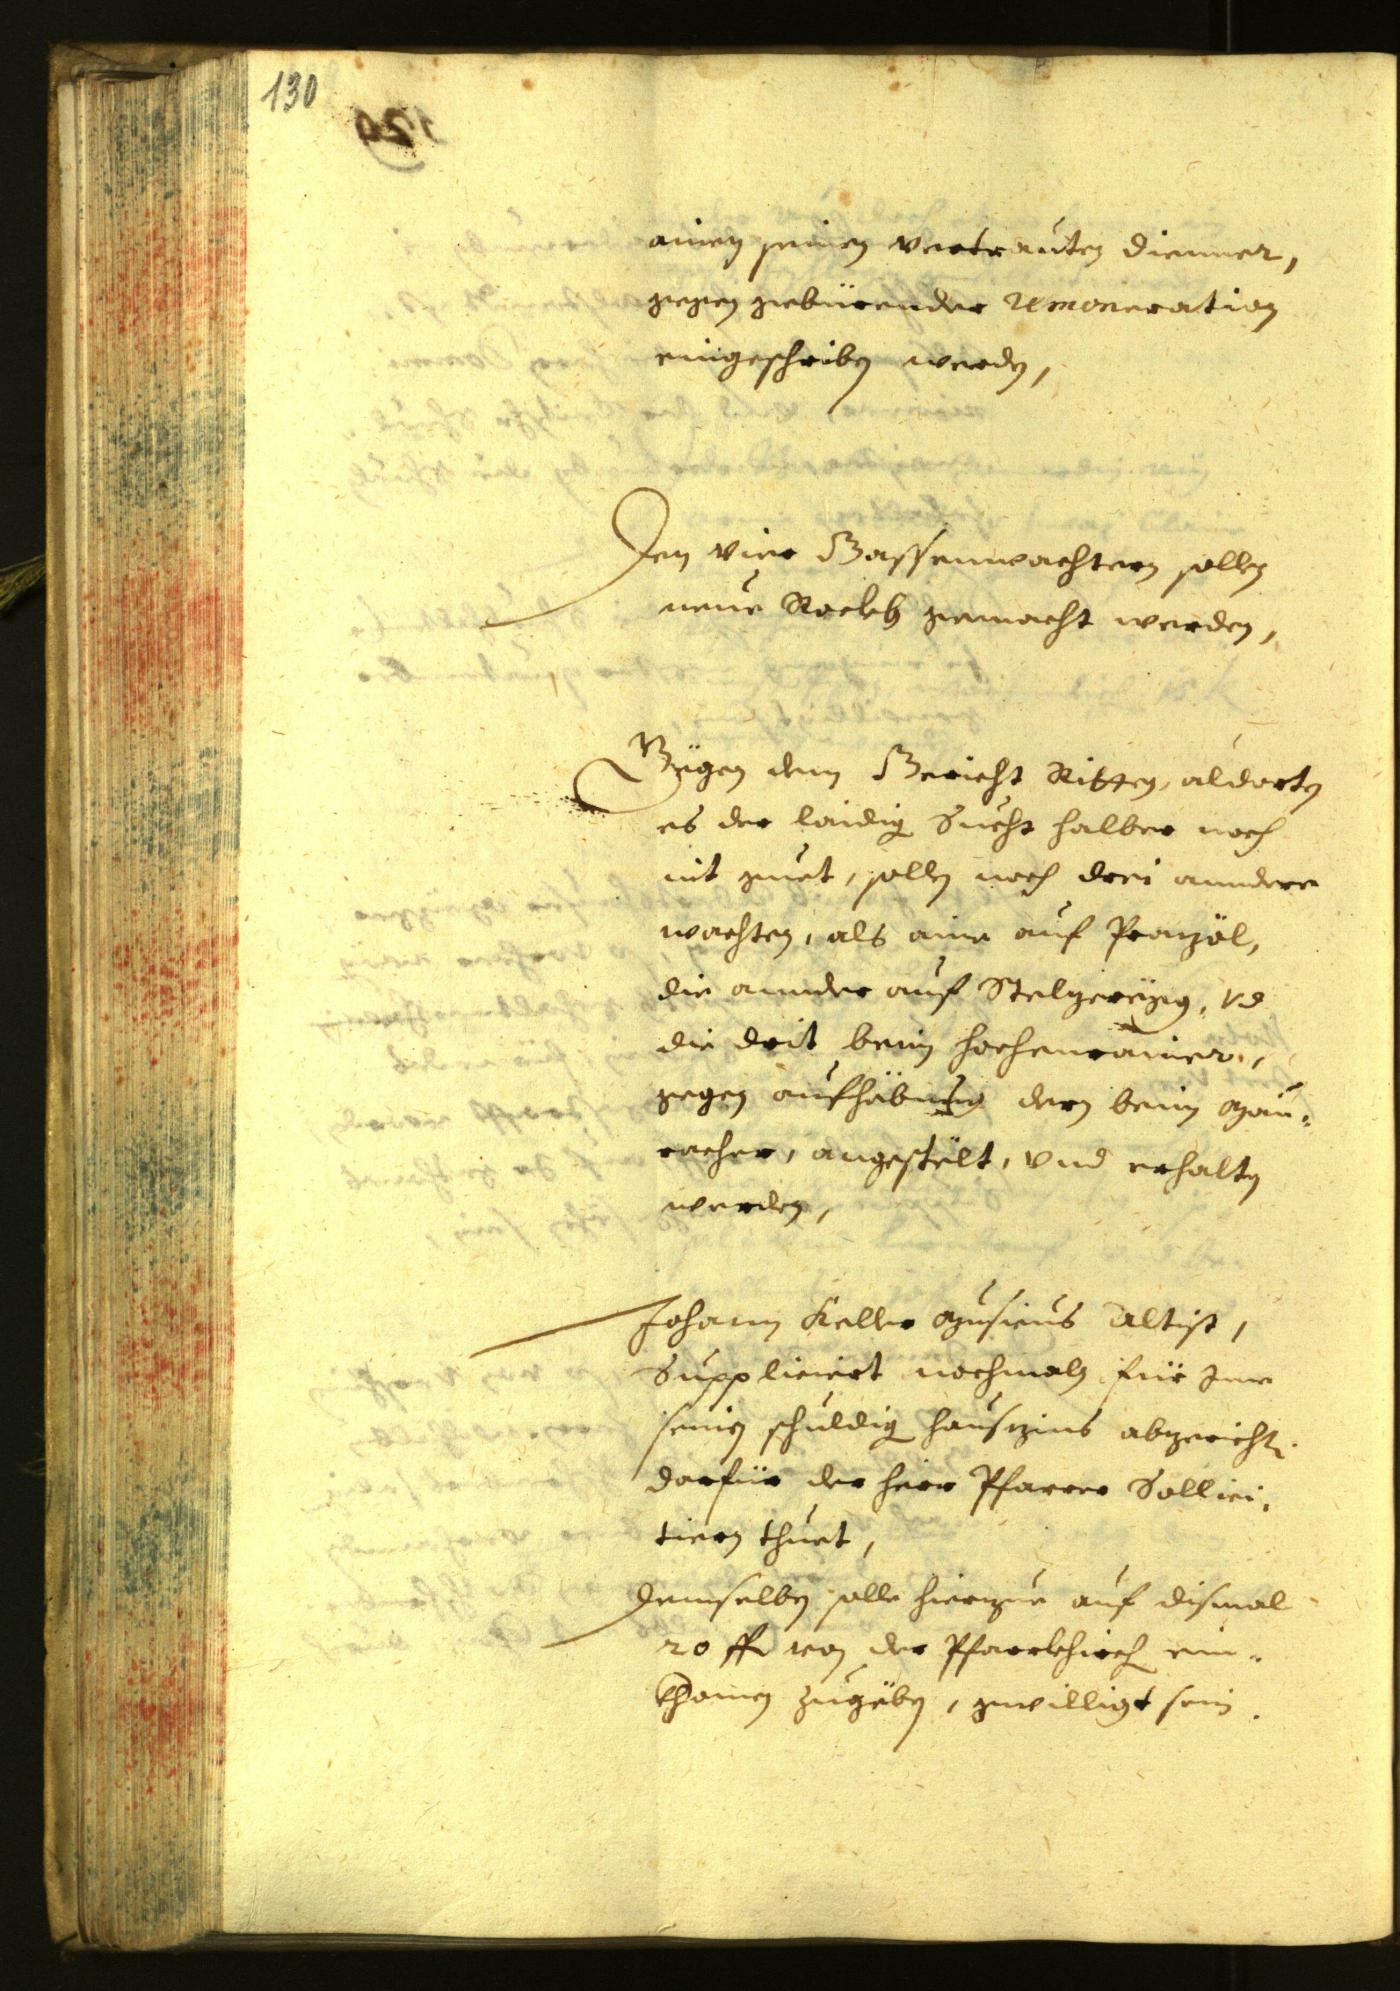 130
ainen seinen vertrauten Dienner,
gegen gebürender remoneration
eingeschriben werden,
Den vier Gassenwachtern sollen
neue Röckh gemacht werden,
Gegen dem Gericht Ritten, aldorten
es der laidig Sucht halber noch
nit guet, sollen noch drei anndere
wachten, als aine auf
die annder auf vnd
die drit beim Hochenrainer,
gegen aufhäbung dern beim Mau-
racher, angestelt, vnd erhalten
werden,
Johann Keller Musicus Altist,
Suppliciert nochmaln für Ine
seinen schuldig hauszins abgericht.
darfür der Herr Pfarrer Sollici-
tiern thuet,
Demselben solle hierzue auf dismal
20 fl von der Pfarrkhirch ein-
khomen zugëben, gewilligt sein.